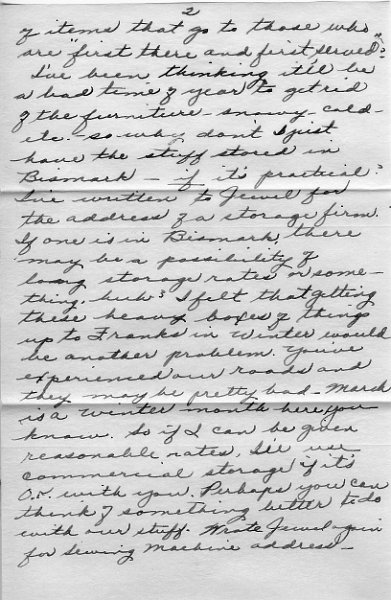 2
of items that go to those who
are "first there and first served".
I've been thinking it'll be
a bad time of year to get rid
of the furniture - snowy - cold -
etc. - so why don't I just
have the stuff stored in
Bismark - if it's practical?
I've written to Jewel for
the address of a storage firm.
If one is in Bismark, there
may be a possibility of
storage rates or some-
thing, huh? I felt that getting
these heavy boxes of things
up to Franks in Winter would
be another problem. You've
experienced our roads and
they may be pretty bad - March
is a winter month here you
know. So if I can be given
reasonable rates, I'll use
commercial storage if it's
O.K. with you. Perhaps you can
think of something better to do
with our stuff. Wrote Jewel again
for Sewing Machine address -